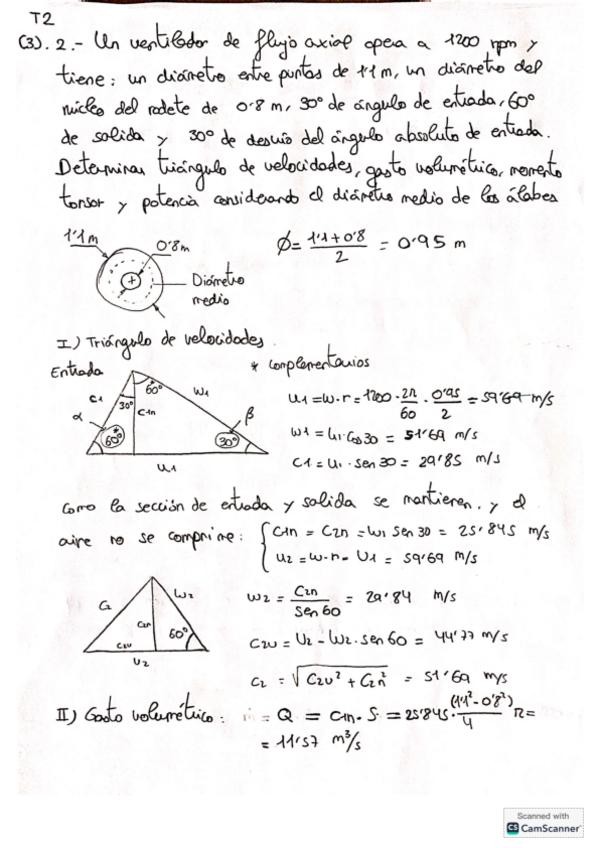 T2
(3). 2.- Un ventilador de flujo axial opera a 1200 rpm y
tiene: un diámetro entre puntas de 1'1 m, un diámetro del
núcleo del rodete de 0'8 m, 30° de ángulo de entrada, 60°
de salida y 30° de desvío del ángulo absoluto de entrada.
Determinar triángulo de velocidades, gasto volumétrico, momento
tonsor y potencia considerando el diámetro medio de los álabes
1'1 m
0'8 m
Diámetro
medio
Ø = (1'1 + 0'8)/2 = 0'95 m
I.) Triángulo de velocidades.
Entrada
* Complementarios
C1
60°
W1
30°
C1n
α
β
60°*
30°
U1
U1 = W·r = 1200 · 2π/60 · 0'95/2 = 59'69 m/s
W1 = U1·cos 30 = 51'69 m/s
C1 = U1 · sen 30 = 29'85 m/s
Como la sección de entrada y salida se mantienen, y el
aire no se comprime: { C1n = C2n = W1 sen 30 = 25'845 m/s
U2 = W·r = U1 = 59'69 m/s
C2
W2
C2n
60°
C2u
U2
W2 = C2n / sen 60 = 29'84 m/s
C2u = U2 - W2 · sen 60 = 44'77 m/s
C2 = √(C2u² + C2n²) = 51'69 m/s
II) Gasto volumétrico: Q = C1n · S = 25'845 · (1'1² - 0'8²)/4 π =
= 11'57 m³/s
Scanned with
CS CamScanner